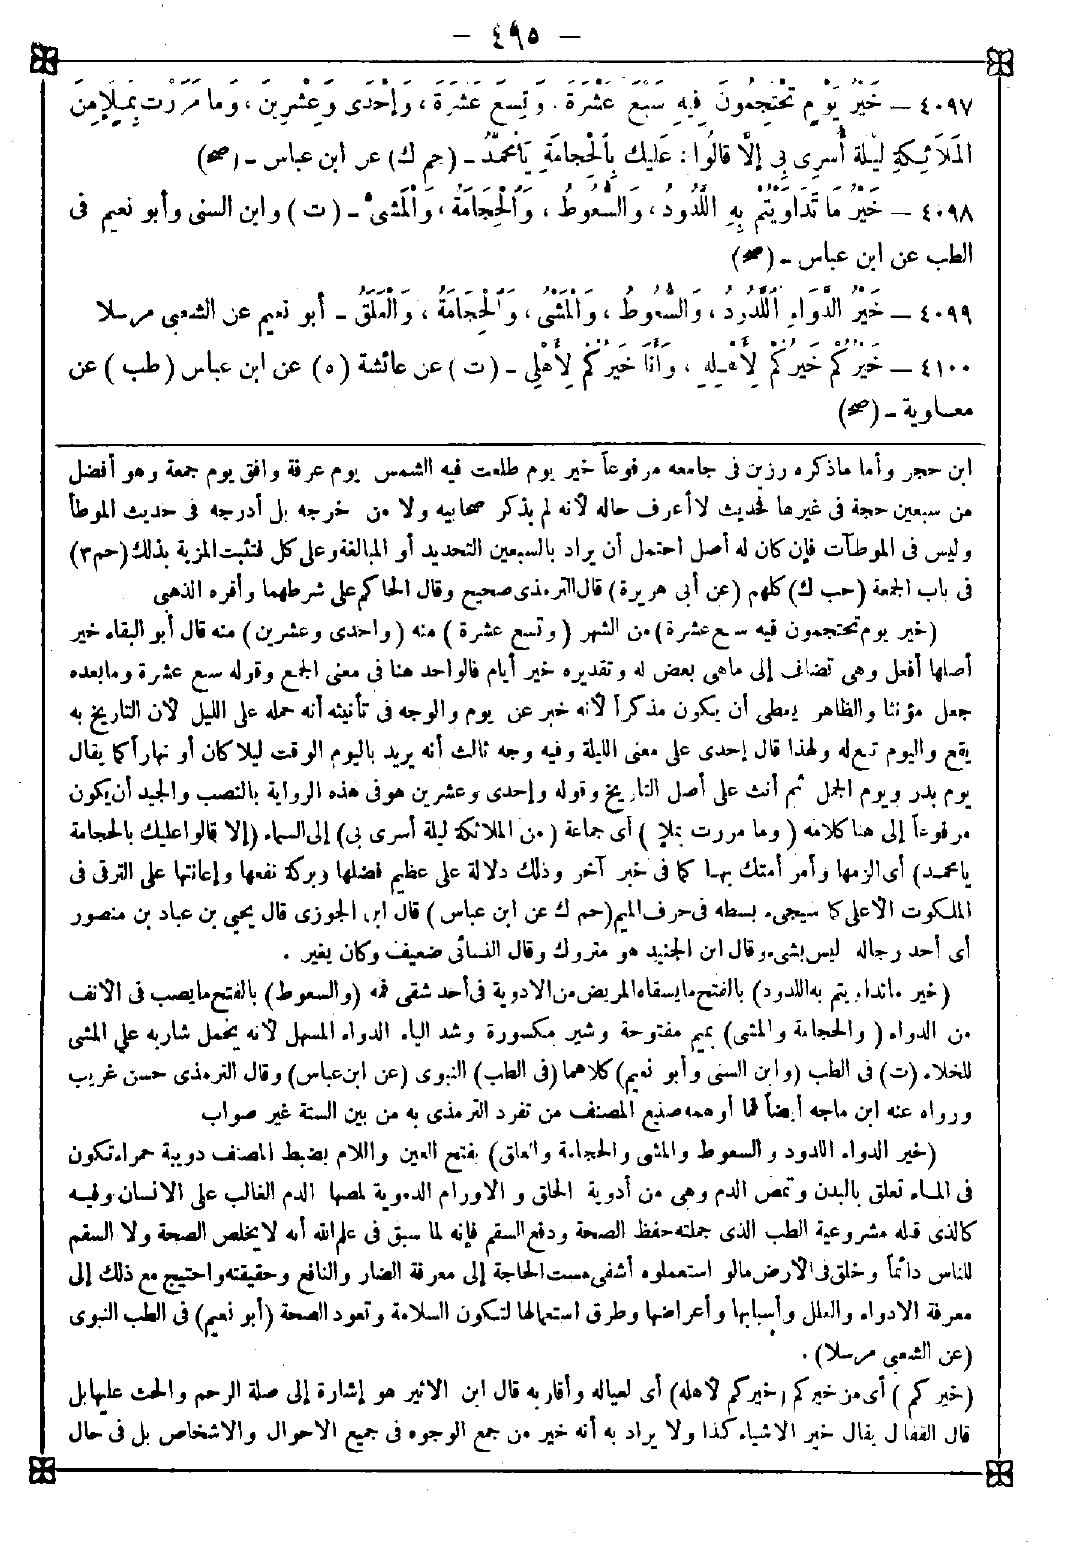 — ٤٩٥ —
٤٠٩٧ — خَيْرُ يَوْمٍ تَحْتَجِمُونَ فِيهِ سَبْعَ عَشْرَةَ، وَتِسْعَ عَشْرَةَ، وَإِحْدَى وَعِشْرِينَ، وَمَا مَرَرْتُ بِمَلَإٍ مِنَ
الْمَلَائِكَةِ لَيْلَةَ أُسْرِىَ بِى إِلَّا قَالُوا: عَلَيْكَ بِالْحِجَامَةِ يَا مُحَمَّدُ - (حم ك) عن ابن عباس - (صح)
٤٠٩٨ — خَيْرُ مَا تَدَاوَيْتُمْ بِهِ اللَّدُودُ، وَالسَّعُوطُ، وَالْحِجَامَةُ، وَالْمَشِىُّ - (ت) وابن السنى وأبو نعيم فى
الطب عن ابن عباس - (صح)
٤٠٩٩ — خَيْرُ الدَّوَاءِ اللَّدُودُ، وَالسَّعُوطُ، وَالْمَشْىُ، وَالْحِجَامَةُ، وَالْعَلَقُ - أبو نعيم عن الشعبى مرسلا
٤١٠٠ — خَيْرُكُمْ خَيْرُكُمْ لِأَهْلِهِ، وَأَنَا خَيْرُكُمْ لِأَهْلِى - (ت) عن عائشة (ه) عن ابن عباس (طب) عن
معاوية - (صح)
ابن حجر وأما ماذكره رزين فى جامعه مرفوعاً خير يوم طلعت فيه الشمس يوم عرفة وافق يوم جمعة وهو أفضل
من سبعين حجة فى غيرها فحديث لاأعرف حاله لأنه لم يذكر صحابيه ولا من خرجه بل أدرجه فى حديث الموطأ
وليس فى الموطآت فإن كان له أصل احتمل أن يراد بالسبعين التحديد أو المبالغة وعلى كل فتثبت المزية بذلك (حم ٣)
فى باب الجمعة (حب ك) كلهم (عن أبى هريرة) قال الترمذى صحيح وقال الحاكم على شرطهما وأقره الذهبى
(خير يوم تحتجمون فيه سبع عشرة) من الشهر (وتسع عشرة) منه (واحدى وعشرين) منه قال أبو البقاء خير
أصلها أفعل وهى تضاف إلى ماهى بعض له وتقديره خير أيام فالواحد هنا فى معنى الجمع وقوله سبع عشرة ومابعده
جعل مؤنثا والظاهر يعطى أن يكون مذكراً لأنه خبر عن يوم والوجه فى تأنيثه أنه حمله على الليل لأن التاريخ به
يقع واليوم تبع له ولهذا قال إحدى على معنى الليلة وفيه وجه ثالث أنه يريد باليوم الوقت ليلا كان أو نهاراً كما يقال
يوم بدر ويوم الجمل ثم أنث على أصل التاريخ وقوله وإحدى وعشرين هو فى هذه الرواية بالنصب والجيد أن يكون
مرفوعاً إلى هنا كلامه (وما مررت بملإ) أى جماعة (من الملائكة ليلة أسرى بى) إلى السماء (إلا قالوا عليك بالحجامة
يا محمد) أى الزمها وأمر أمتك بها كما فى خبر آخر وذلك دلالة على عظيم فضلها وبركة نفعها وإعانتها على الترقى فى
الملكوت الأعلى كما سيجىء بسطه فى حرف الميم (حم ك عن ابن عباس) قال ابن الجوزى قال يحيى بن عباد بن منصور
أى أحد رجاله ليس بشىء وقال ابن الجنيد هو متروك وقال النسائى ضعيف وكان يغير .
(خير ماتداويتم به اللدود) بالفتح مايسقاه المريض من الأدوية فى أحد شقى فمه (والسعوط) بالفتح مايصب فى الأنف
من الدواء (والحجامة والمشى) بميم مفتوحة وشين مكسورة وشد الياء الدواء المسهل لأنه يحمل شاربه على المشى
للخلاء (ت) فى الطب (وابن السنى وأبو نعيم) كلاهما (فى الطب) النبوى (عن ابن عباس) وقال الترمذى حسن غريب
ورواه عنه ابن ماجه أيضاً فما أوهمه صنيع المصنف من تفرد الترمذى به من بين الستة غير صواب
(خير الدواء اللدود والسعوط والمشى والحجامة والعلق) بفتح العين واللام بضبط المصنف دويبة حمراء تكون
فى الماء تعلق بالبدن وتمص الدم وهى من أدوية الحلق والأورام الدموية لمصها الدم الغالب على الانسان وفيه
كالذى قبله مشروعية الطب الذى جملته حفظ الصحة ودفع السقم فإنه لما سبق فى علم الله أنه لا يخلص الصحة ولا السقم
للناس دائماً وخلق فى الأرض مالو استعملوه أشفى مست الحاجة إلى معرفة الضار والنافع وحقيقته واحتيج مع ذلك إلى
معرفة الادواء والعلل وأسبابها وأعراضها وطرق استعمالها لتكون السلامة وتعود الصحة (أبو نعيم) فى الطب النبوى
(عن الشعبى مرسلا) .
(خيركم) أى من خيركم (خيركم لأهله) أى لعياله وأقاربه قال ابن الأثير هو إشارة إلى صلة الرحم والحث عليها بل
قال القفال يقال خير الأشياء كذا ولا يراد به أنه خير من جميع الوجوه فى جميع الاحوال والاشخاص بل فى حال